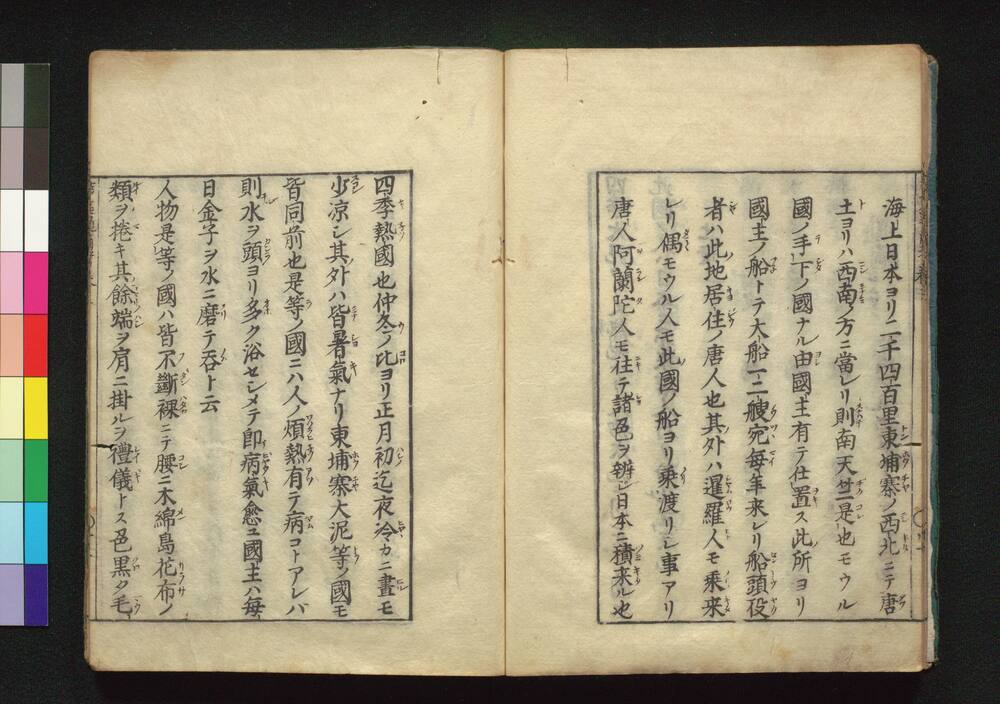 海上日本ヨリ二千四百里東埔寨ノ西北ニテ唐
土ヨリハ西南ノ方ニ當レリ則南天竺是也モウル
國ノ手下ノ國ナル由國主有テ仕置ス此所ヨリ
國主ノ船トテ大船一二艘宛毎年来レリ船頭役
者ハ此地居住ノ唐人也其外ハ暹羅人モ乘来
レリ偶モウル人モ此國ノ船ヨリ乘渡リシ事アリ
唐人阿蘭陀人モ往テ諸色ヲ辨シ日本ニ積来ル也
四季熱國也仲冬ノ比ヨリ正月初迄夜冷カニ晝モ
少凉シ其外ハ皆暑氣ナリ東埔寨大泥等ノ國モ
皆同前也是等ノ國ニハ人ノ煩熱有テ病コトアレバ
則水ヲ頭ヨリ多ク浴セシメテ即病氣愈ユ國主ハ毎
日金子ヲ水ニ磨テ吞ト云
人物是等ノ國ハ皆不斷裸ニテ腰ニ木綿島花布ノ
類ヲ捲キ其餘端ヲ肩ニ掛ルヲ禮儀トス色黒ク毛